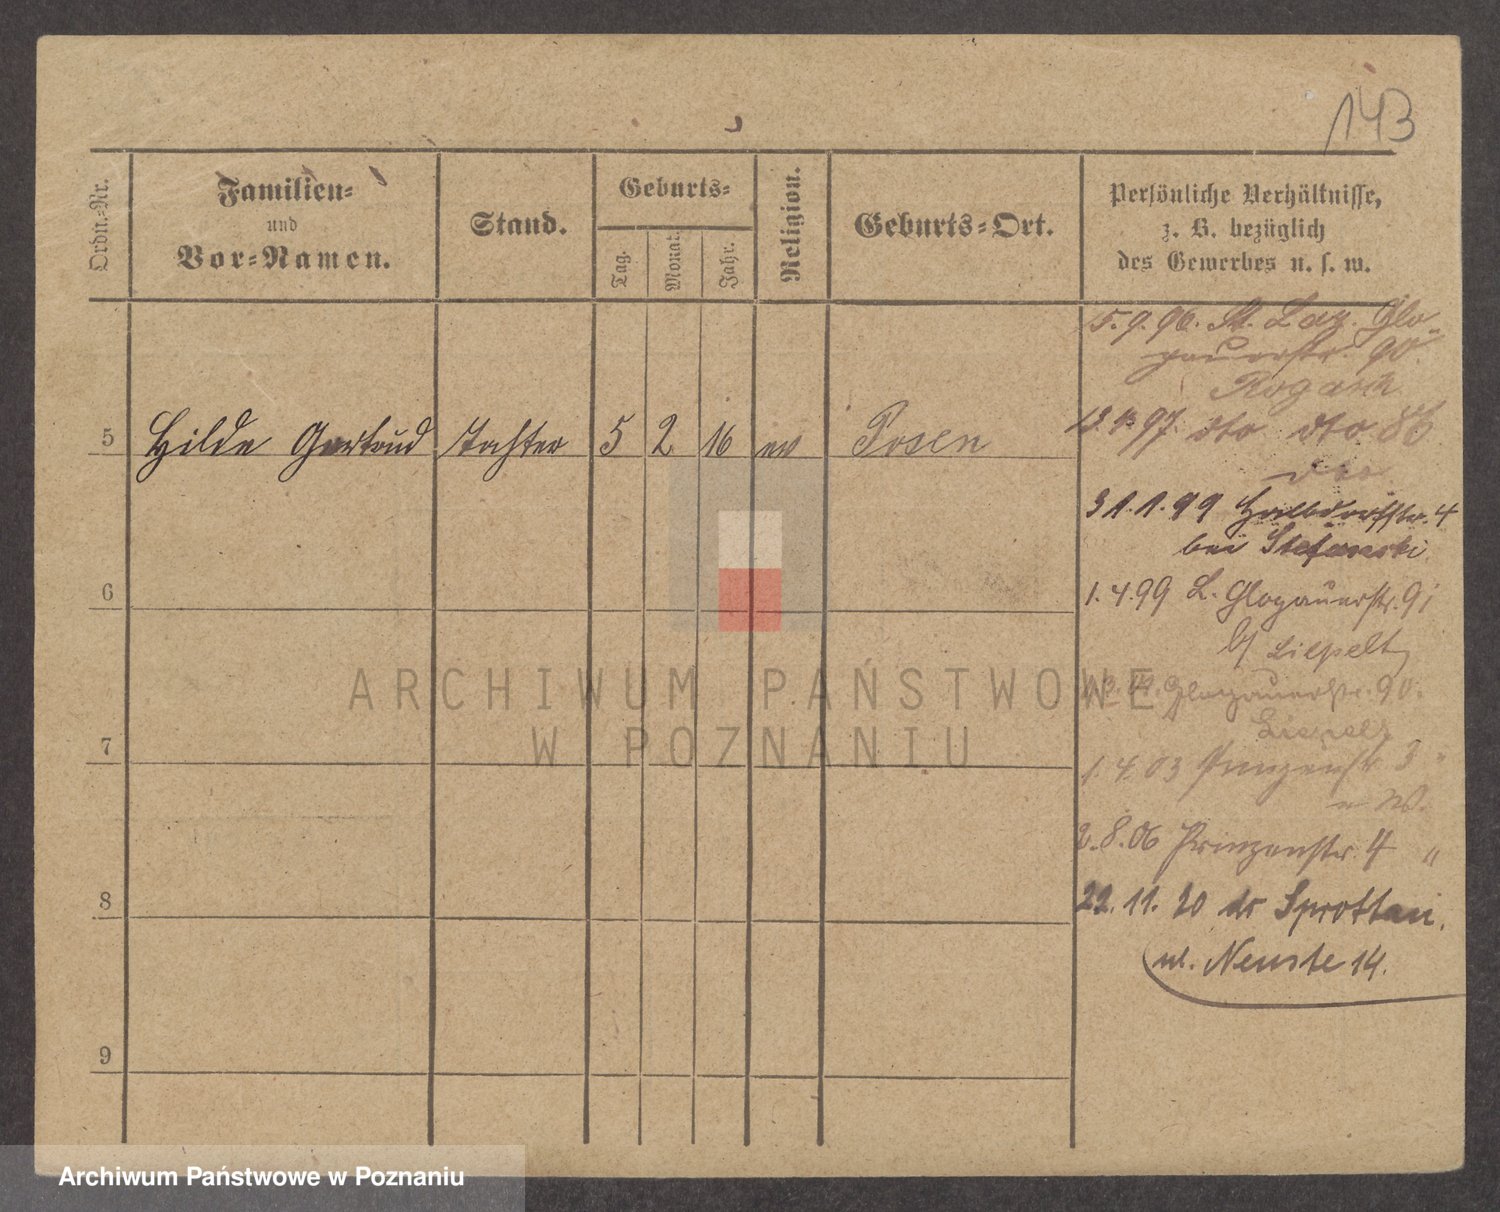 143
Ordn.-Nr.
Familien=
und
Vor=Namen.
Stand.
Geburts=
Tag.
Monat.
Jahr.
Religion.
Geburts=Ort.
Persönliche Verhältnisse,
z. B. bezüglich
des Gewerbes u. s. w.
5 Hilde Gertrud Tochter 5 2 16 ev Posen
6
7
8
9
5.9.96. St. Laz. Glo-
gauerstr. 90.
Rogasch
97. dto dto 86
31.1.99 Halbdorfstr. 4
bei Stefanski
1.4.99 L. Glogauerstr. 91
b/ Liepelt
Glogauerstr. 90.
Liepelt
1.4.03 Prinzenstr. 3
2.8.06 Prinzenstr. 4 "
22.11.20 Sprottau.
Neuste 14.
ARCHIWUM PAŃSTWOWE
W POZNANIU
Archiwum Państwowe w Poznaniu